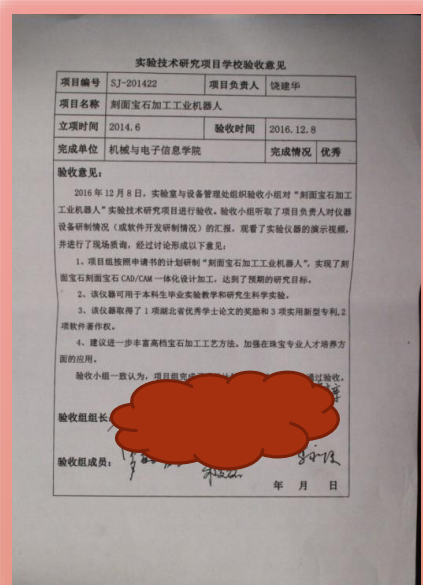 实验技术研究项目学校验收意见
项目编号 SJ-201422 项目负责人 饶建华
项目名称 刻面宝石加工工业机器人
立项时间 2014.6 验收时间 2016.12.8
完成单位 机械与电子信息学院 完成情况 优秀
验收意见：
2016年12月8日，实验室与设备管处组织验收小组对“刻面宝石加工
工业机器人”实验技术研究项目进行验收。验收小组听取了项目负责人对仪器
设备研制情况（或软件开发研制情况）的汇报，观看了实验仪器的演示视频，
并进行了现场质询，经过讨论形成以下意见：
1、项目组按照申请书的计划研制“刻面宝石加工工业机器人”，实现了刻
面宝石刻面宝石CAD/CAM一体化设计加工，达到了预期的研究目标。
2、该仪器可用于本科生毕业实验教学和研究生科学实验。
3、该仪器取得了1项湖北省优秀学士论文的奖励和3项实用新型专利,2
项软件著作权。
4、建议进一步丰富高档宝石加工工艺方法，加强在珠宝专业人才培养方
面的应用。
验收小组一致认为，项目组完成 通过验收。
验收组组长：
验收组成员：
年 月 日